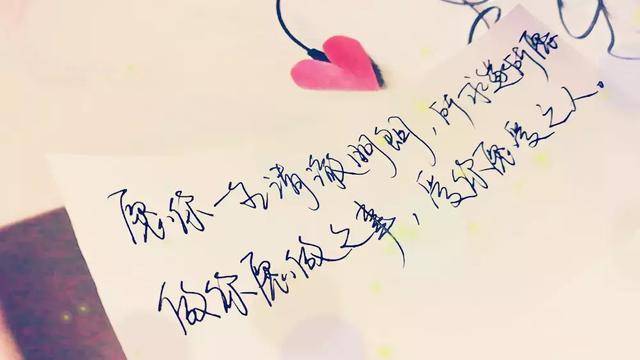 愿你一生清澈明朗，所求遂所愿
做你愿做之事，爱你愿爱之人。